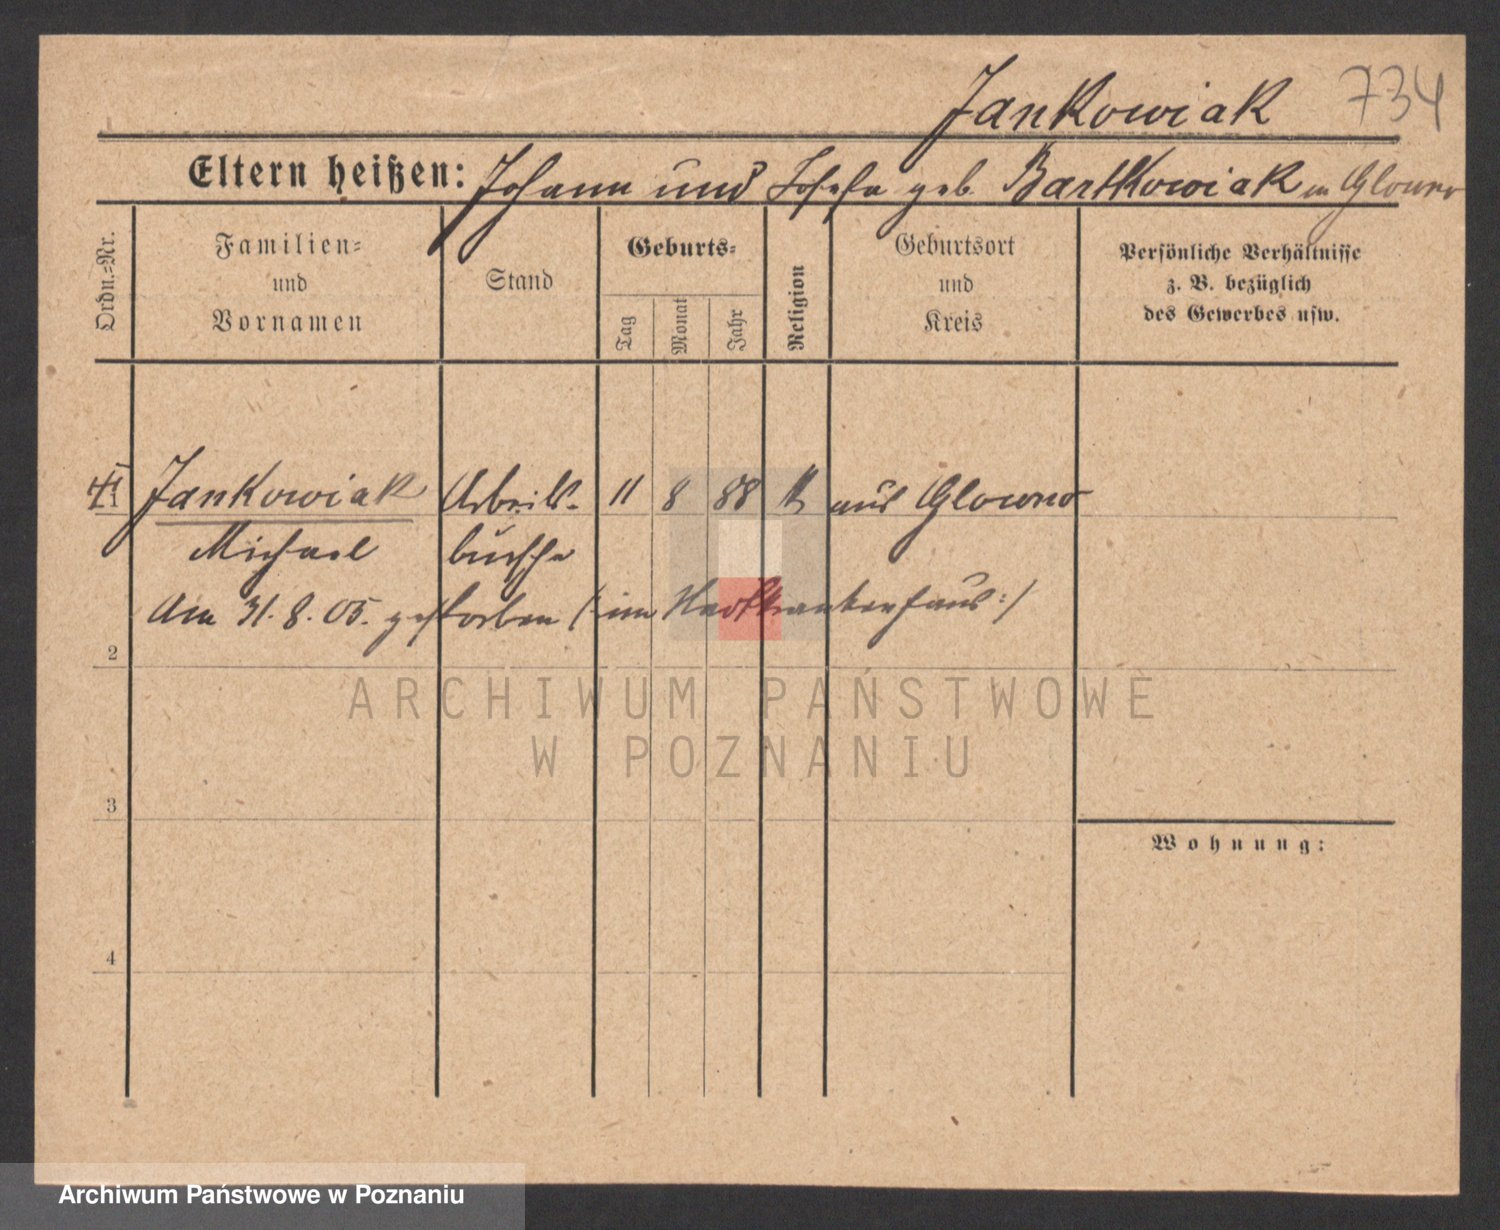 Jankowiak 734
Eltern heißen: Johann und Josefa geb. Bartkowiak in Glowno
Ordn.-Nr.
Familien-
und
Vornamen
Stand
Geburts-
Tag
Monat
Jahr
Religion
Geburtsort
und
Kreis
Persönliche Verhältnisse
z. B. bezüglich
des Gewerbes usw.
Jankowiak Arbeits- 11 8 88 k aus Glowno
Michael bursche
Am 31.8.05. gestorben (: im :)
2
ARCHIWUM PAŃSTWOWE
W POZNANIU
3
Wohnung:
4
Archiwum Państwowe w Poznaniu